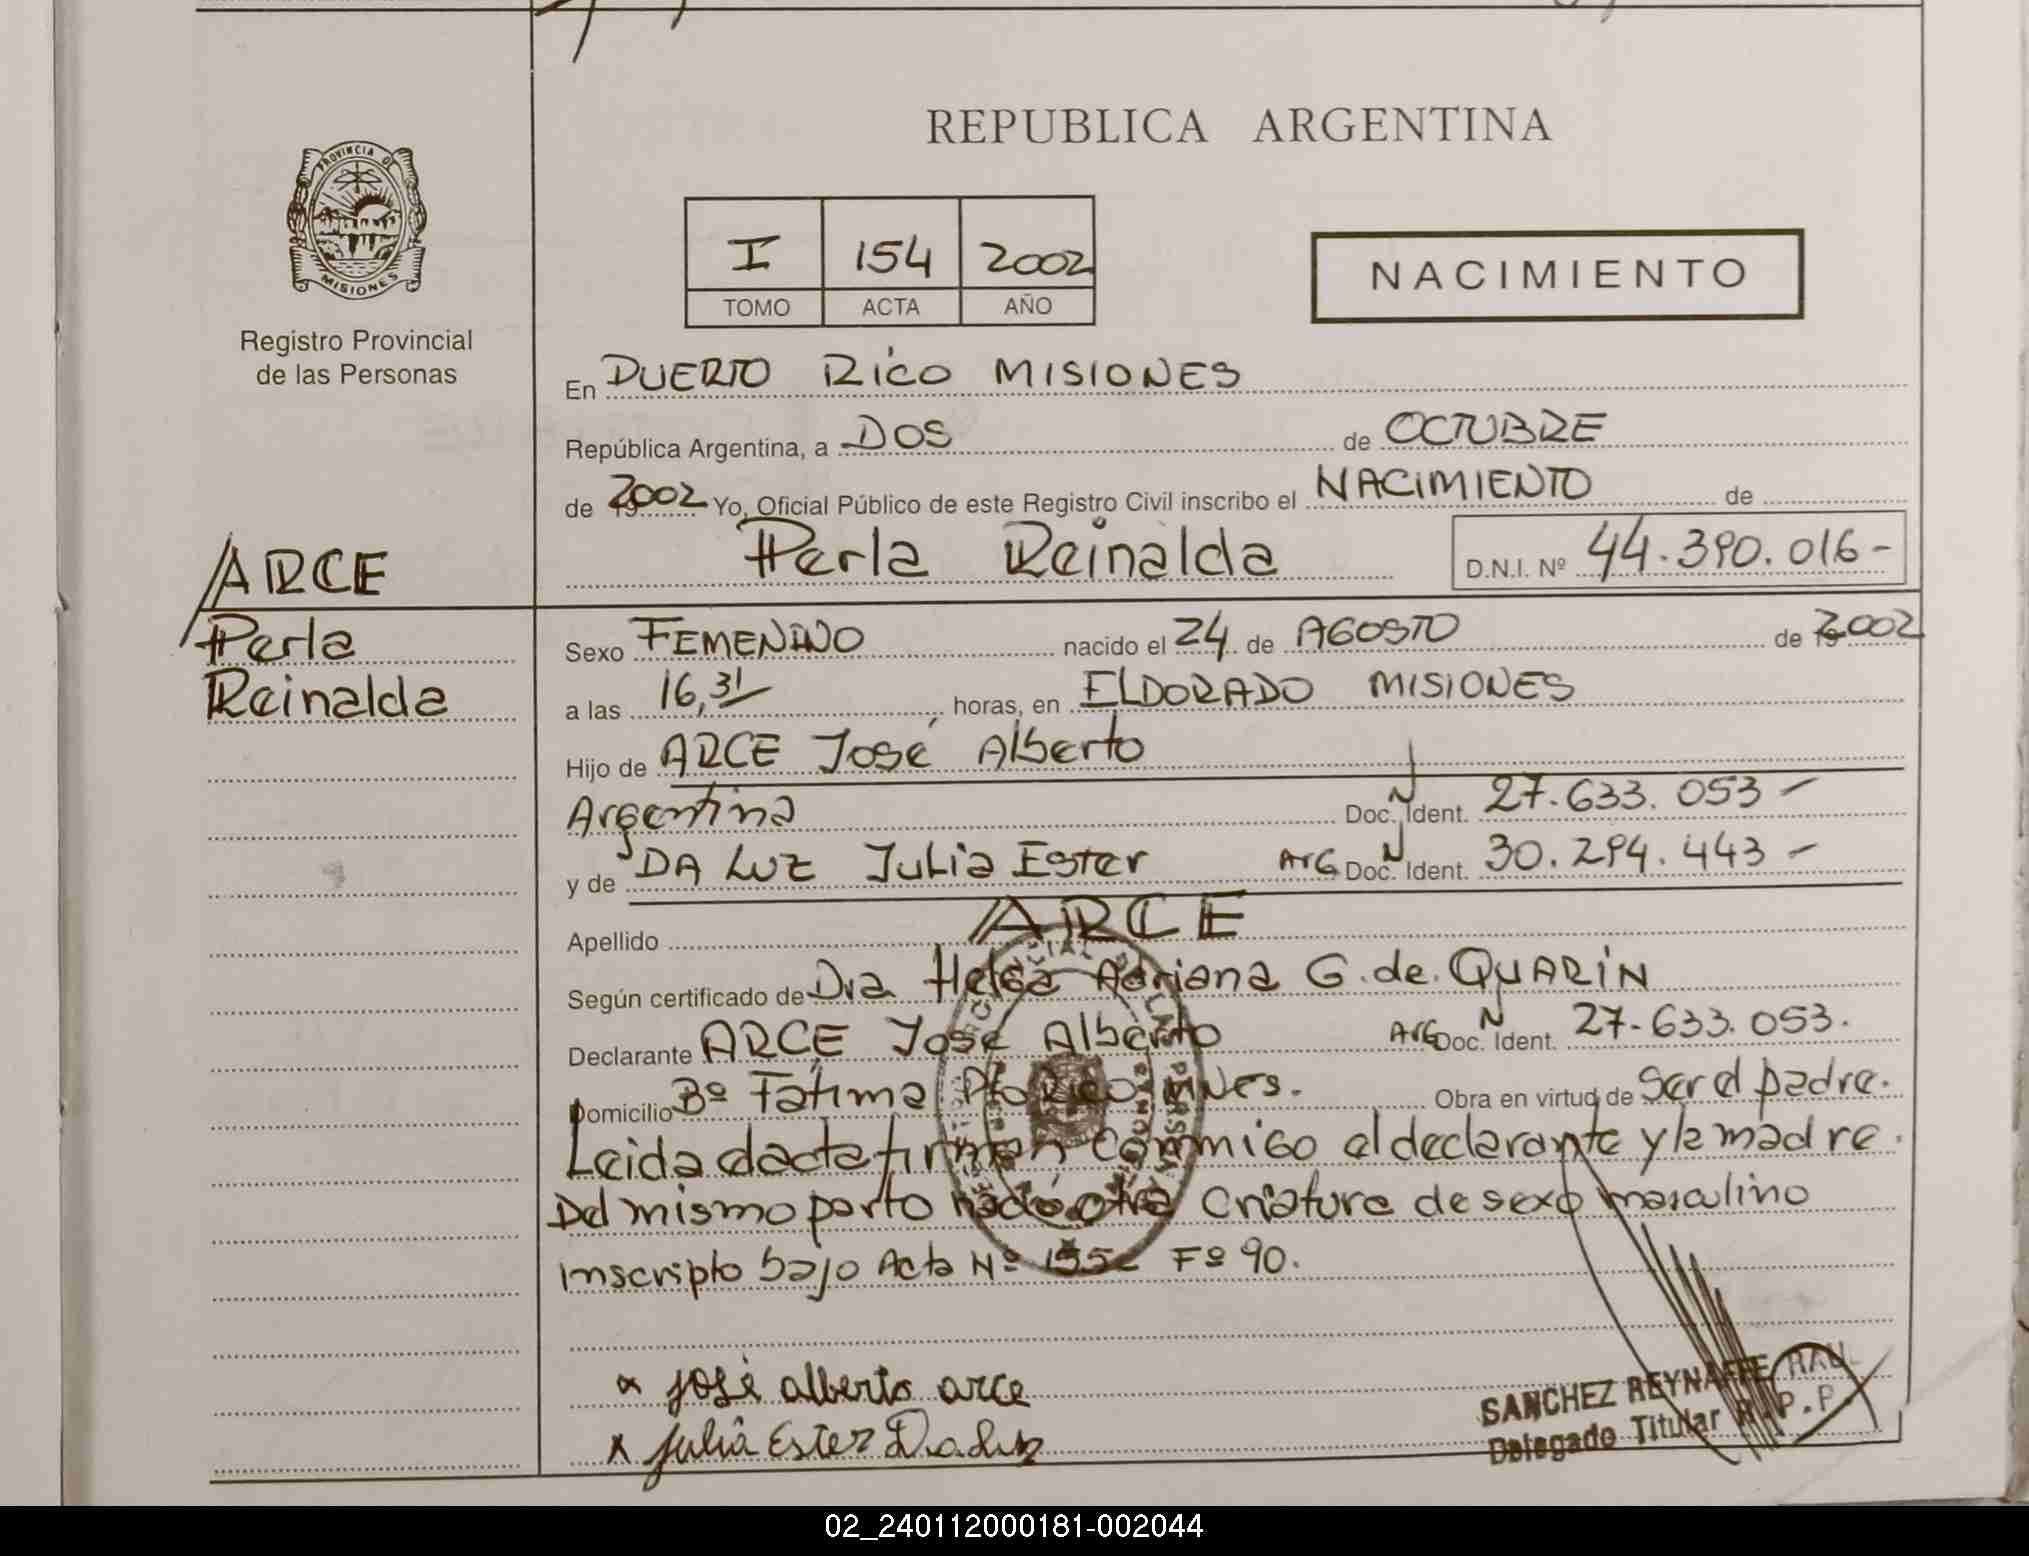 REPUBLICA ARGENTINA
PROVINCIA DE
MISIONES
Registro Provincial
de las Personas
I 154 2002
TOMO ACTA AÑO
NACIMIENTO
En PUERTO RICO MISIONES
República Argentina, a DOS de OCTUBRE
de 2002 Yo, Oficial Público de este Registro Civil inscribo el NACIMIENTO de
Perla Reinalda D.N.I. Nº 44.390.016-
ARCE
Perla
Reinalda
Sexo FEMENINO nacido el 24 de AGOSTO de 2002
a las 16,31 horas, en ELDORADO MISIONES
Hijo de ARCE José Alberto
Argentina Doc. N Ident. 27.633.053-
y de DA LUZ Julia Ester ArG Doc. N Ident. 30.294.443-
Apellido ARCE
Según certificado de Dra Helga Adriana G. de. QUARIN
Declarante ARCE José Alberto ArG Doc. N Ident. 27-633.053.
Domicilio Bº Fátima Pto Rico Mnes. Obra en virtud de Ser el padre.
Leida el acta firman conmigo el declarante y la madre.
Del mismo parto nació otra criatura de sexo masculino
inscripto bajo Acta Nº Fº 90.
x josé alberto arce
x Julia Ester Da Luz
SANCHEZ REYNAFFE RAUL
Delegado Titular R.P.P.
02_240112000181-002044